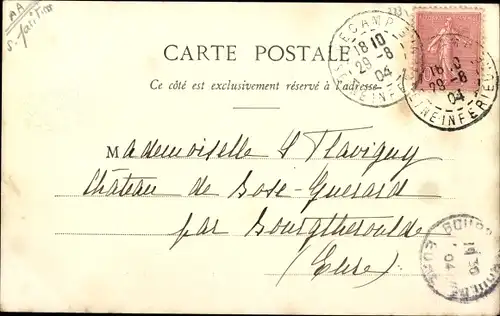 AA
CARTE POSTALE
Ce côté est exclusivement réservé à l'adresse
FECAMP
18 10
29 - 8
04
SEINE INFERIEURE
18 10
29 - 8
04
SEINE INFERIEURE
Mademoiselle S Flavigny
Château de Bosc-Guérard
par Bourgtheroulde
(Eure)
BOURGTHEROULDE
30
04
EURE